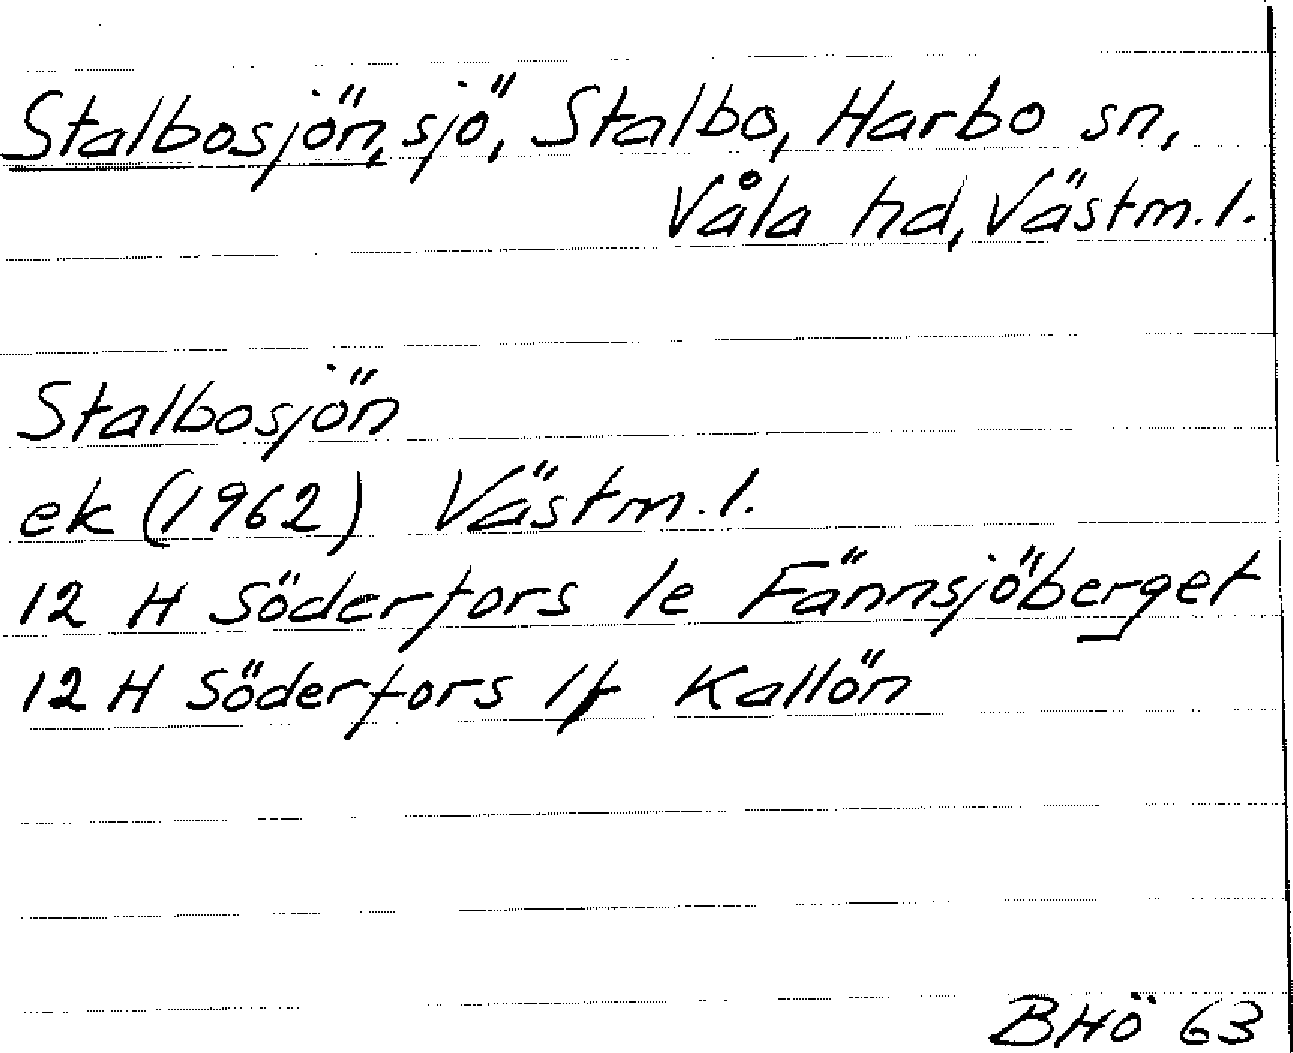 Stalbosjön, sjö, Stalbo, Harbo sn,
Våla hd, Västm. l.
Stalbosjön
ek (1962) Västm. l.
12 H Söderfors 1e Fännsjöberget
12 H Söderfors 1f Kallön
BHÖ 63